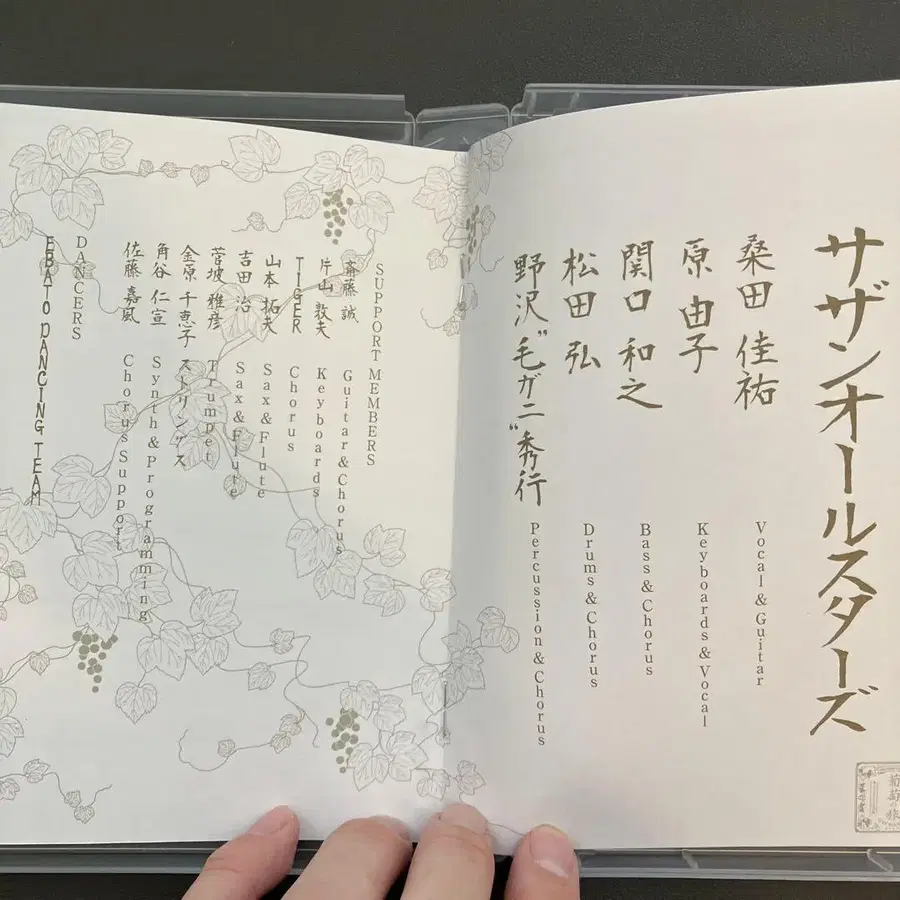 サザンオールスターズ
桑田 佳祐 Vocal & Guitar
原 由子 Keyboards & Vocal
関口 和之 Bass & Chorus
松田 弘 Drums & Chorus
野沢"毛ガニ"秀行 Percussion & Chorus
SUPPORT MEMBERS
斎藤 誠 Guitar & Chorus
片山 敦夫 Keyboards
TIGER Chorus
山本 拓夫 Sax & Flute
吉田 治 Sax & Flute
菅坡 雅彦 Trumpet
金原 千恵子 ストリングス
角谷 仁宣 Synth & Programming
佐藤 嘉風 Chorus Support
DANCERS
EBATO DANCING TEAM